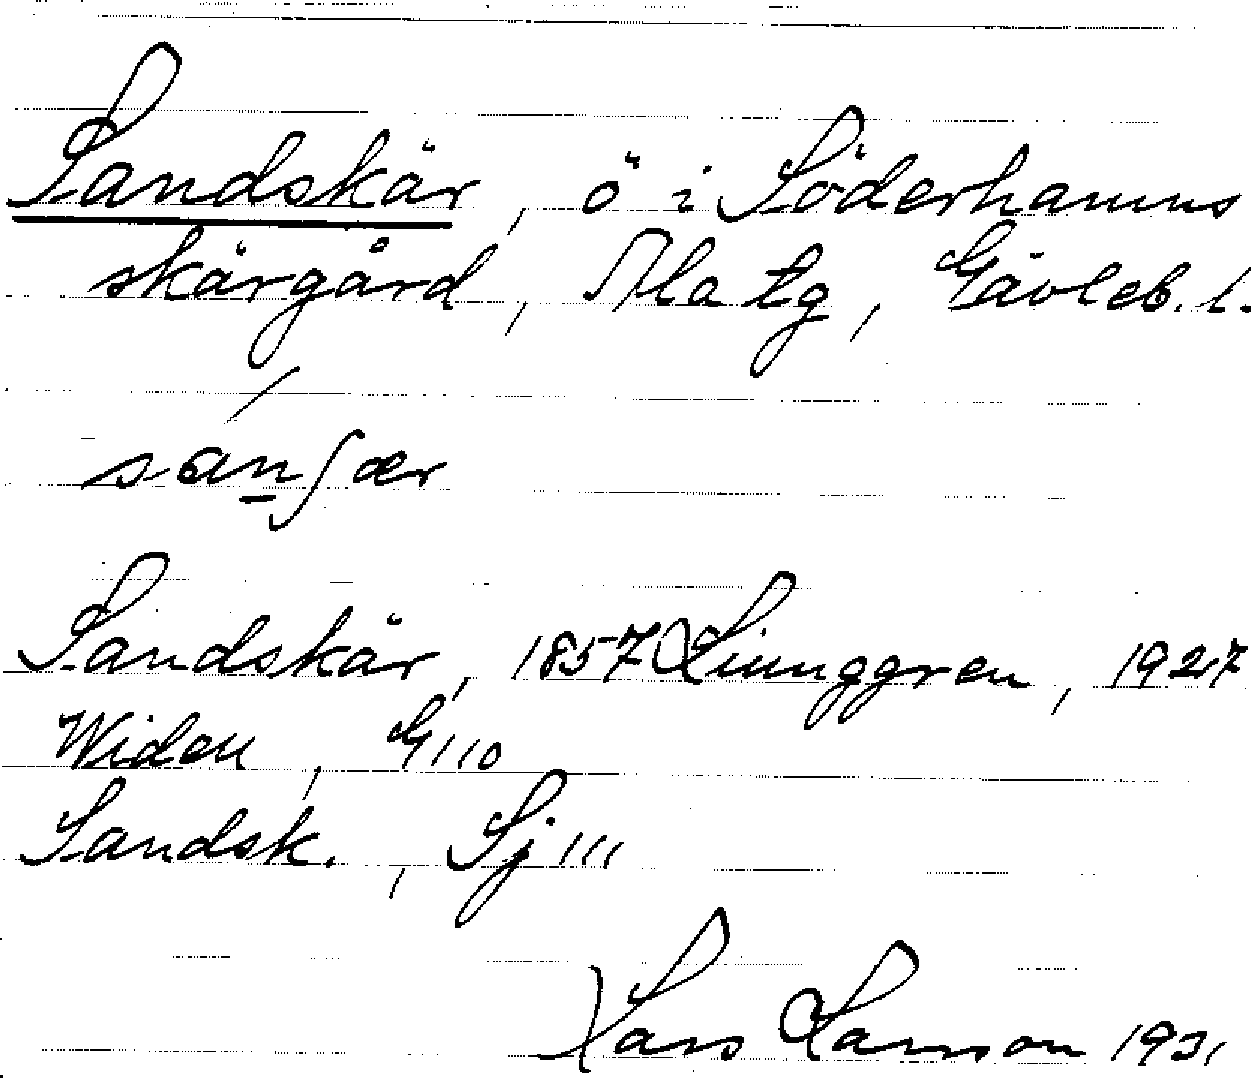 Sandskär, ö i Söderhamns
skärgård, Ala tg, Gävleb. l.
sanʃær
Sandskär, 1857 Ljunggren, 1927
Widen, G110
Sandsk., Sj 111
Lars Larson 1931